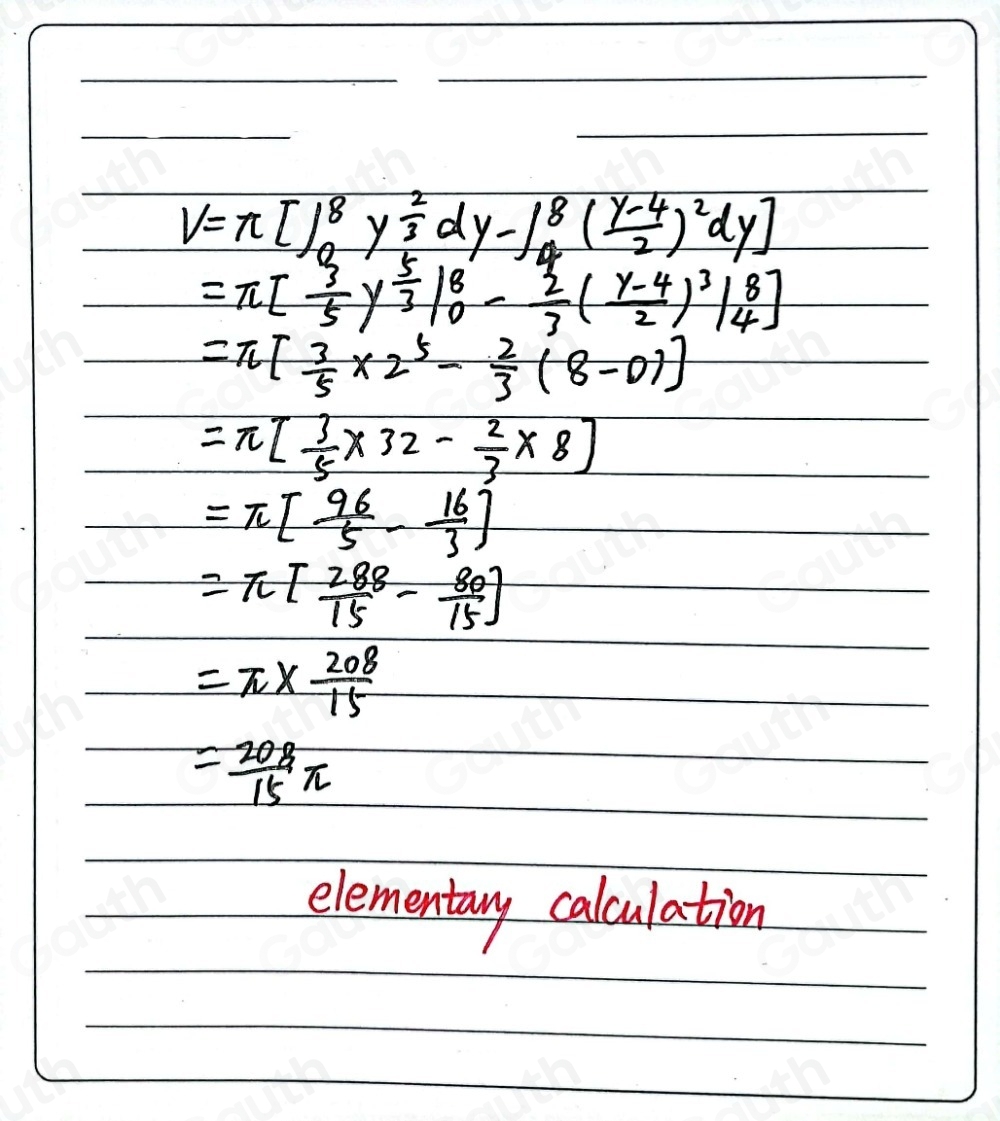 V=π[∫₀⁸ y^(2/3) dy-∫₄⁸ ((y-4)/2)² dy]
=π[3/5 y^(5/3) |₀⁸ - 2/3 ((y-4)/2)³ |₄⁸]
=π[3/5 × 2⁵ - 2/3 (8-0)]
=π[3/5 × 32 - 2/3 × 8]
=π[96/5 - 16/3]
=π[288/15 - 80/15]
=π × 208/15
=208/15 π
elementary calculation
Gauth